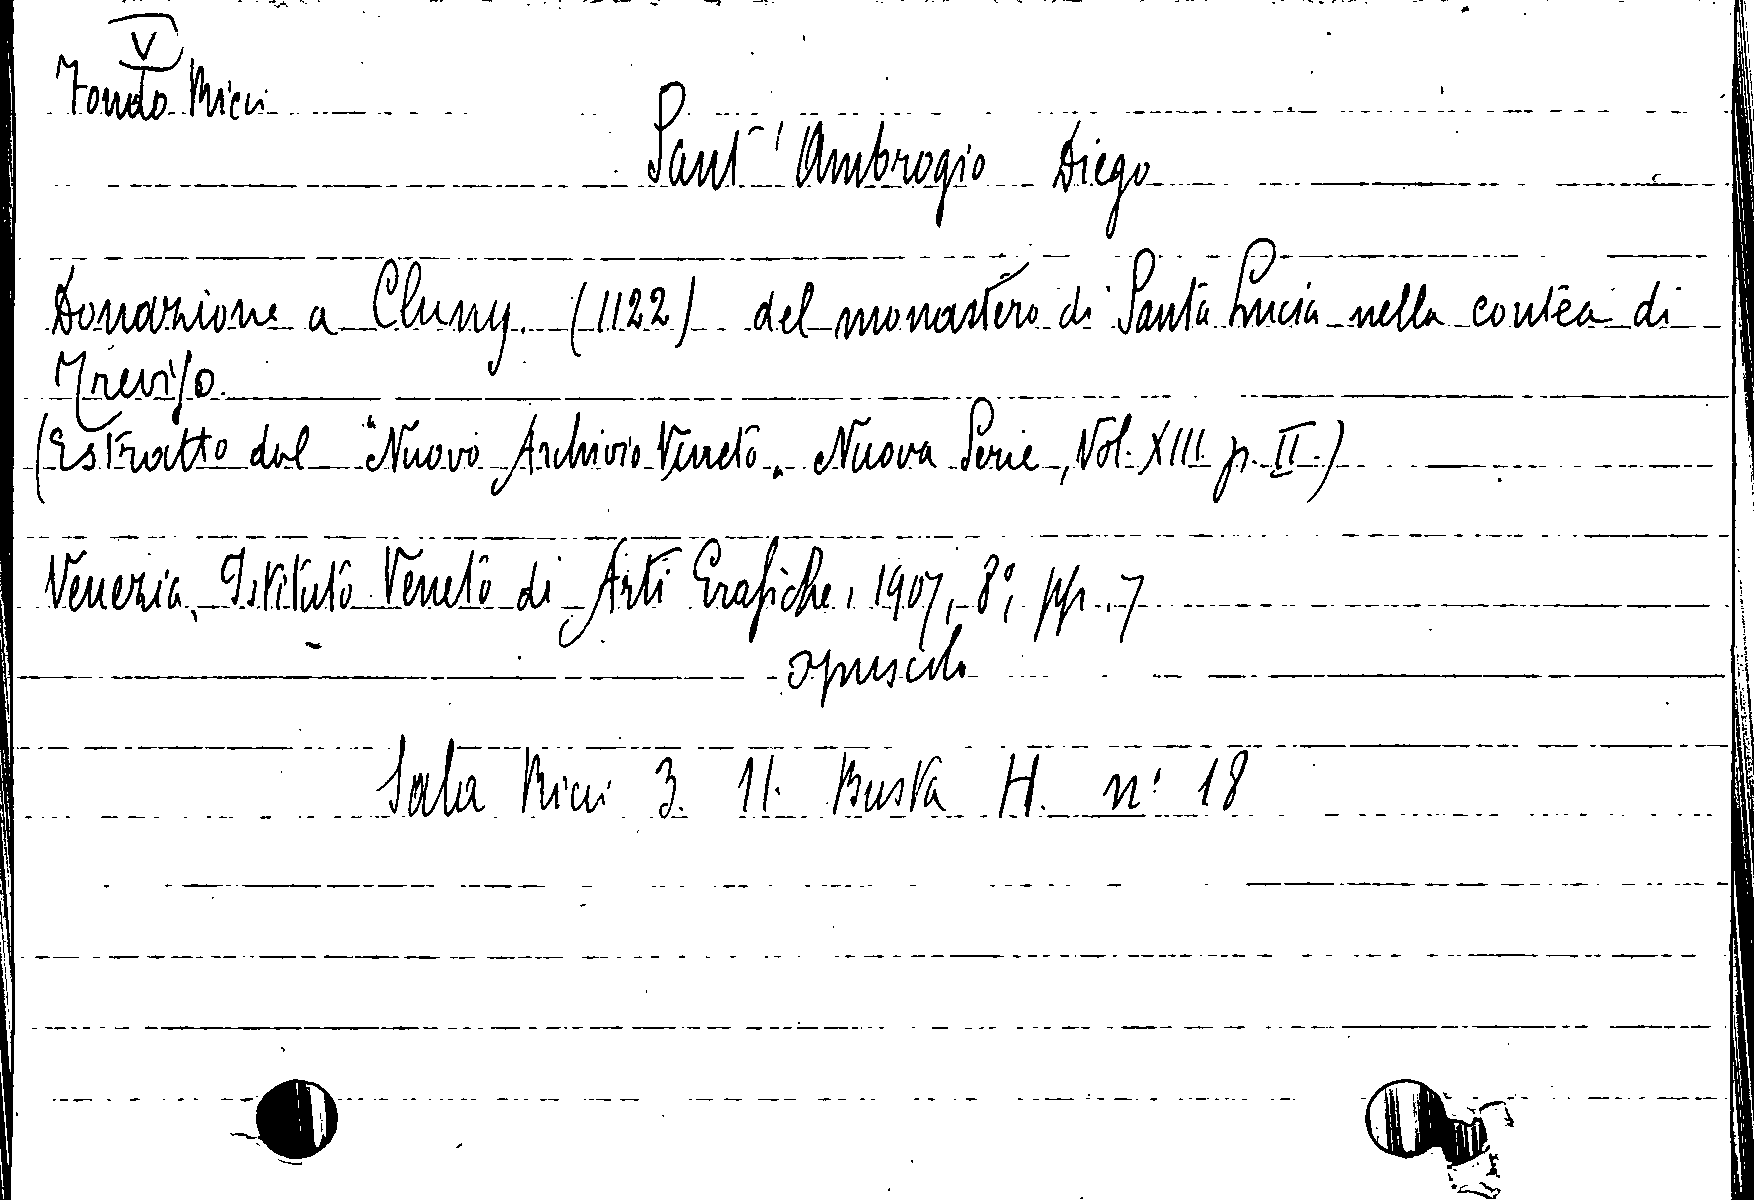 V
Fondo Ricci
Sant' Ambrogio Diego
Donazione a Cluny. (1122) del monastero di Santa Lucia nella contea di
Treviso.
(Estratto dal "Nuovo Archivio Veneto„ Nuova Serie, Vol. XIII p. II.)
Venezia, Istituto Veneto di Arti Grafiche, 1907, 8°, pp. 7
opuscolo
Sala Ricci 3. 11. Busta H. n° 18